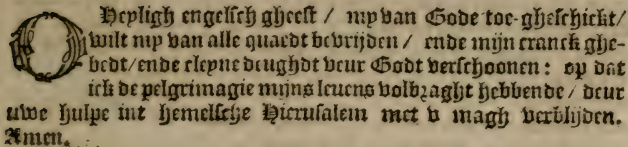 O Heyligh engelsch gheest / my van Gode toe-gheschickt/
wilt my van alle quaedt bevrijden / ende mijn cranck ghe-
bedt/ende cleyne deughdt veur Godt verschoonen: op dat
ick de pelgrimagie mijns levens volbraght hebbende / deur
uwe hulpe int hemelsche Hierusalem met v magh verblijden.
Amen.